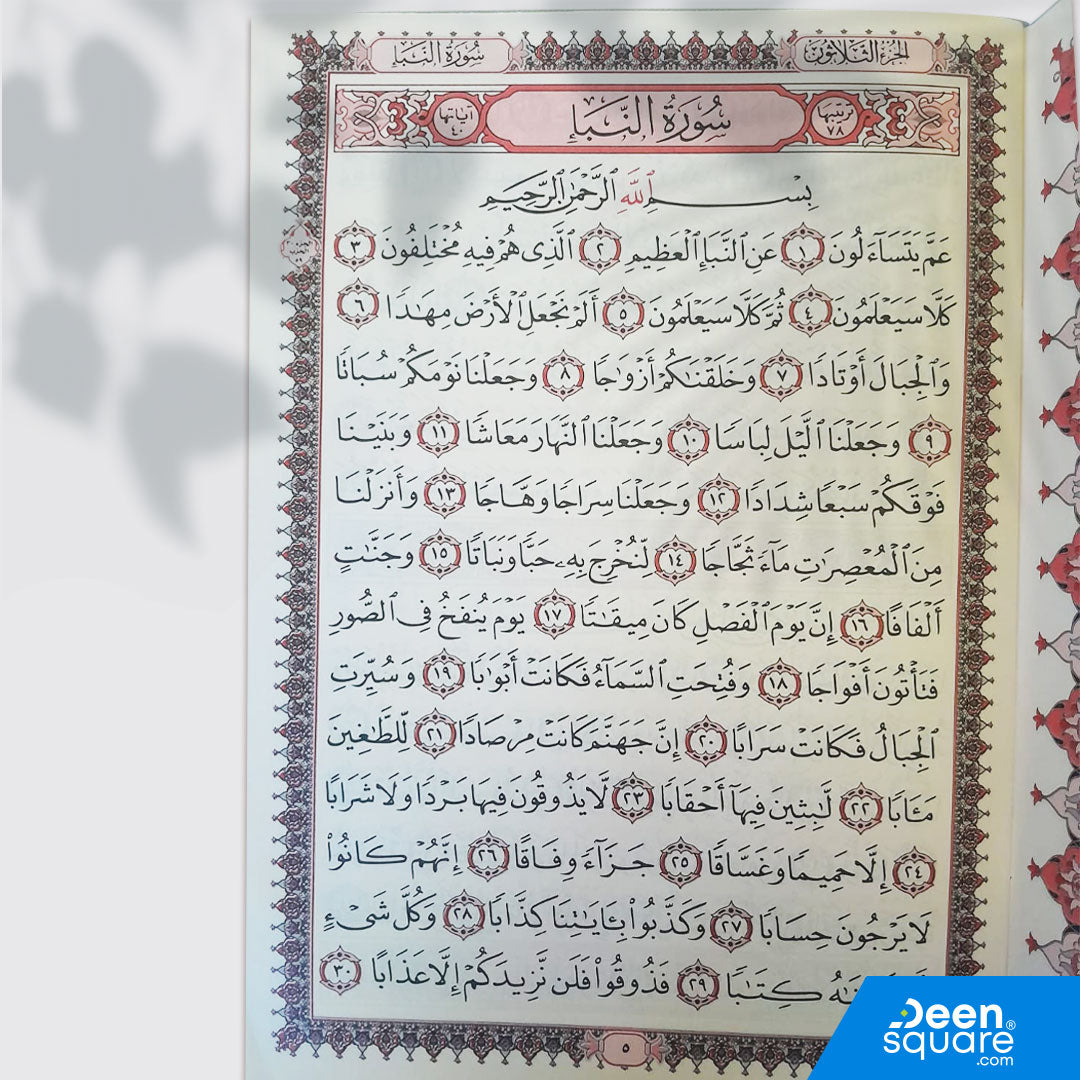 الجزء الثلاثون
سورة النبإ
ترتيبها ٧٨
سُورَةُ النَّبَإِ
آياتها ٤٠
بِسْمِ ٱللَّهِ ٱلرَّحْمَٰنِ ٱلرَّحِيمِ
عَمَّ يَتَسَآءَلُونَ ١ عَنِ ٱلنَّبَإِ ٱلْعَظِيمِ ٢ ٱلَّذِى هُمْ فِيهِ مُخْتَلِفُونَ ٣
كَلَّا سَيَعْلَمُونَ ٤ ثُمَّ كَلَّا سَيَعْلَمُونَ ٥ أَلَمْ نَجْعَلِ ٱلْأَرْضَ مِهَٰدًا ٦
وَٱلْجِبَالَ أَوْتَادًا ٧ وَخَلَقْنَٰكُمْ أَزْوَٰجًا ٨ وَجَعَلْنَا نَوْمَكُمْ سُبَاتًا
٩ وَجَعَلْنَا ٱلَّيْلَ لِبَاسًا ١٠ وَجَعَلْنَا ٱلنَّهَارَ مَعَاشًا ١١ وَبَنَيْنَا
فَوْقَكُمْ سَبْعًا شِدَادًا ١٢ وَجَعَلْنَا سِرَاجًا وَهَّاجًا ١٣ وَأَنزَلْنَا
مِنَ ٱلْمُعْصِرَٰتِ مَآءً ثَجَّاجًا ١٤ لِّنُخْرِجَ بِهِۦ حَبًّا وَنَبَاتًا ١٥ وَجَنَّٰتٍ
أَلْفَافًا ١٦ إِنَّ يَوْمَ ٱلْفَصْلِ كَانَ مِيقَٰتًا ١٧ يَوْمَ يُنفَخُ فِى ٱلصُّورِ
فَتَأْتُونَ أَفْوَاجًا ١٨ وَفُتِحَتِ ٱلسَّمَآءُ فَكَانَتْ أَبْوَٰبًا ١٩ وَسُيِّرَتِ
ٱلْجِبَالُ فَكَانَتْ سَرَابًا ٢٠ إِنَّ جَهَنَّمَ كَانَتْ مِرْصَادًا ٢١ لِّلطَّٰغِينَ
مَـَٔابًا ٢٢ لَّٰبِثِينَ فِيهَآ أَحْقَابًا ٢٣ لَّا يَذُوقُونَ فِيهَا بَرْدًا وَلَا شَرَابًا
٢٤ إِلَّا حَمِيمًا وَغَسَّاقًا ٢٥ جَزَآءً وِفَاقًا ٢٦ إِنَّهُمْ كَانُوا۟
لَا يَرْجُونَ حِسَابًا ٢٧ وَكَذَّبُوا۟ بِـَٔايَٰتِنَا كِذَّابًا ٢٨ وَكُلَّ شَىْءٍ
كِتَٰبًا ٢٩ فَذُوقُوا۟ فَلَن نَّزِيدَكُمْ إِلَّا عَذَابًا ٣٠
٥
Deen
square®
.com